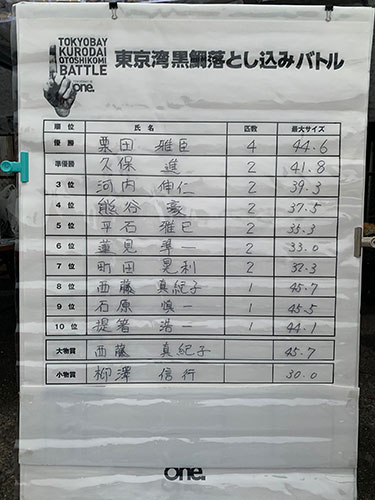 TOKYOBAY
KURODAI
OTOSHIKOMI
BATTLE
one.
東京湾黒鯛落とし込みバトル
順位 氏名 匹数 最大サイズ
優勝 栗田 雅臣 4 44.6
準優勝 久保 進 2 41.8
3位 河内 伸仁 2 39.3
4位 熊谷 豪 2 37.5
5位 平石 雅巳 2 35.3
6位 蓮見 準一 2 33.0
7位 町田 晃利 2 32.3
8位 西藤 真紀子 1 45.7
9位 石原 慎一 1 45.5
10位 提箸 浩一 1 44.1
大物賞 西藤 真紀子 45.7
小物賞 柳澤 信行 30.0
one.